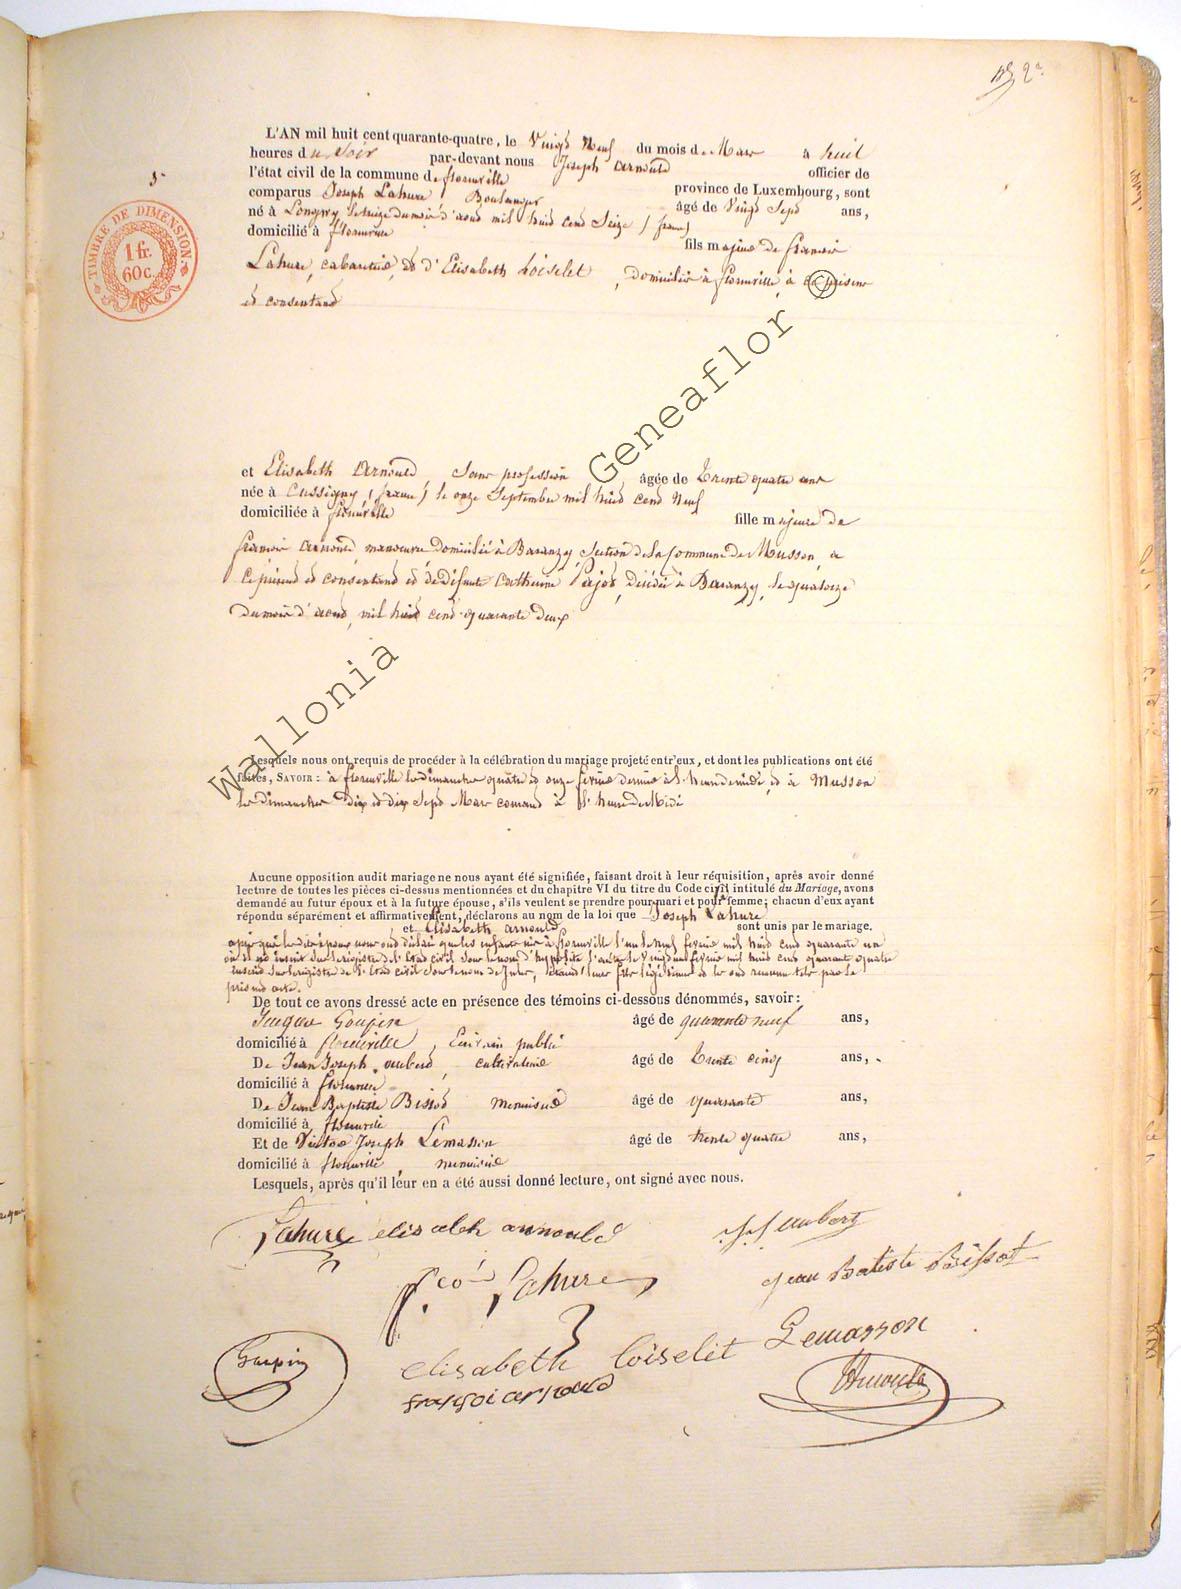 2
5
TIMBRE DE DIMENSION.
1 fr.
60 c.
L'AN mil huit cent quarante-quatre, le Vingt Neuf du mois de Mars à huit
heures du Soir par-devant nous Joseph Arnould officier de
l'état civil de la commune de florenville province de Luxembourg, sont
comparus Joseph Lahure, Boulanger âgé de Vingt Sept ans,
né à Longwy le seize du mois d'aout mil huit cent Seize (france)
domicilié à florenville fils majeur de francois
Lahure, cabaretier, et d'Elisabeth Loiselet, domiciliés à florenville, à ce présens
et consentans
et Elisabeth Arnould Sans profession âgée de Trente quatre ans
née à Cussigny (france) le onze Septembre mil huit cent Neuf
domiciliée à florenville fille majeure de
francois Arnould manoeuvre domicilié à Baranzy Section de la Commune de Musson, à
ce présent et consentant et de défunte Catherine Pajot, décédée à Baranzy, le quatorze
du mois d'aout, mil huit cent quarante deux
Lesquels nous ont requis de procéder à la célébration du mariage projeté entr'eux, et dont les publications ont été
faites, SAVOIR : à florenville les dimanches quatre et onze février dernier à l'heure de midi, et à Musson
les dimanches dix et dix Sept Mars courant à l'heure de Midi
Aucune opposition audit mariage ne nous ayant été signifiée, faisant droit à leur réquisition, après avoir donné
lecture de toutes les pièces ci-dessus mentionnées et du chapitre VI du titre du Code civil intitulé du Mariage, avons
demandé au futur époux et à la future épouse, s'ils veulent se prendre pour mari et pour femme; chacun d'eux ayant
répondu séparément et affirmativement, déclarons au nom de la loi que Joseph Lahure
et Elisabeth arnould sont unis par le mariage.
après quoi les dits époux nous ont déclaré que les enfants nés à florenville l'un le neuf février mil huit cent quarante un
inscrit sur les registres de l'Etat civil sous le nom d'hypolite l'autre le Vingt neuf février mil huit cent quarante quatre
inscrit sur les registres de l'Etat civil sous le nom de Jules, étaient leurs fils légitimes et les ont reconnu tels par le
présent acte.
De tout ce avons dressé acte en présence des témoins ci-dessous dénommés, savoir :
Jacques Goupin âgé de quarante neuf ans,
domicilié à florenville, Ecrivain public
De Jean Joseph aubert, cultivateur âgé de Trente cinq ans,
domicilié à florenville
De Jean Baptiste Bissot menuisier âgé de quarante ans,
domicilié à florenville
Et de Victor Joseph Lemasson âgé de trente quatre ans,
domicilié à florenville, menuisier
Lesquels, après qu'il leur en a été aussi donné lecture, ont signé avec nous.
Lahure elisabeth arnould J. J. aubert
fcois Lahure jean Batiste Bissot
Goupin elisabeth loiselet Lemasson
françoi arnould Arnould
Wallonia Geneaflor ©